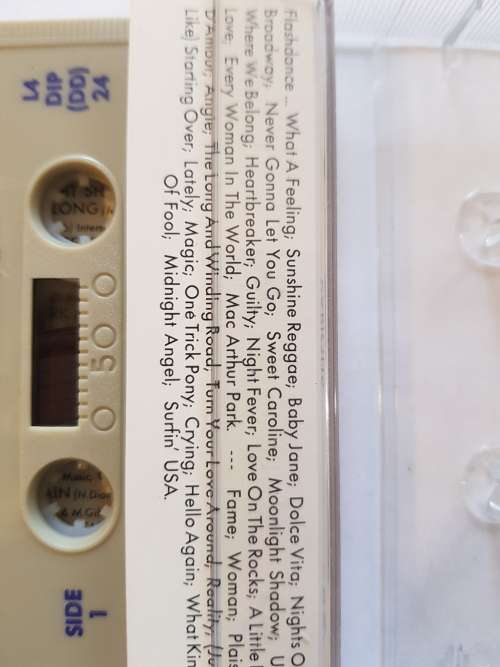 Flashdance ... What A Feeling; Sunshine Reggae; Baby Jane; Dolce Vita; Nights O
Broadway; Never Gonna Let You Go; Sweet Caroline; Moonlight Shadow; U
Where We Belong; Heartbreaker; Guilty; Night Fever; Love On The Rocks; A Little
Love; Every Woman In The World; Mac Arthur Park. --- Fame; Woman; Plais
D'Amour; Angie; The Long And Winding Road; Turn Your Love Around; Reality; (Ju
Like) Starting Over; Lately; Magic; One Trick Pony; Crying; Hello Again; What Kin
Of Fool; Midnight Angel; Surfin' USA.
0 50 0
L4
DIP
(DQ)
24
LONG
Intern
Music
(N.Dia
SIDE
1